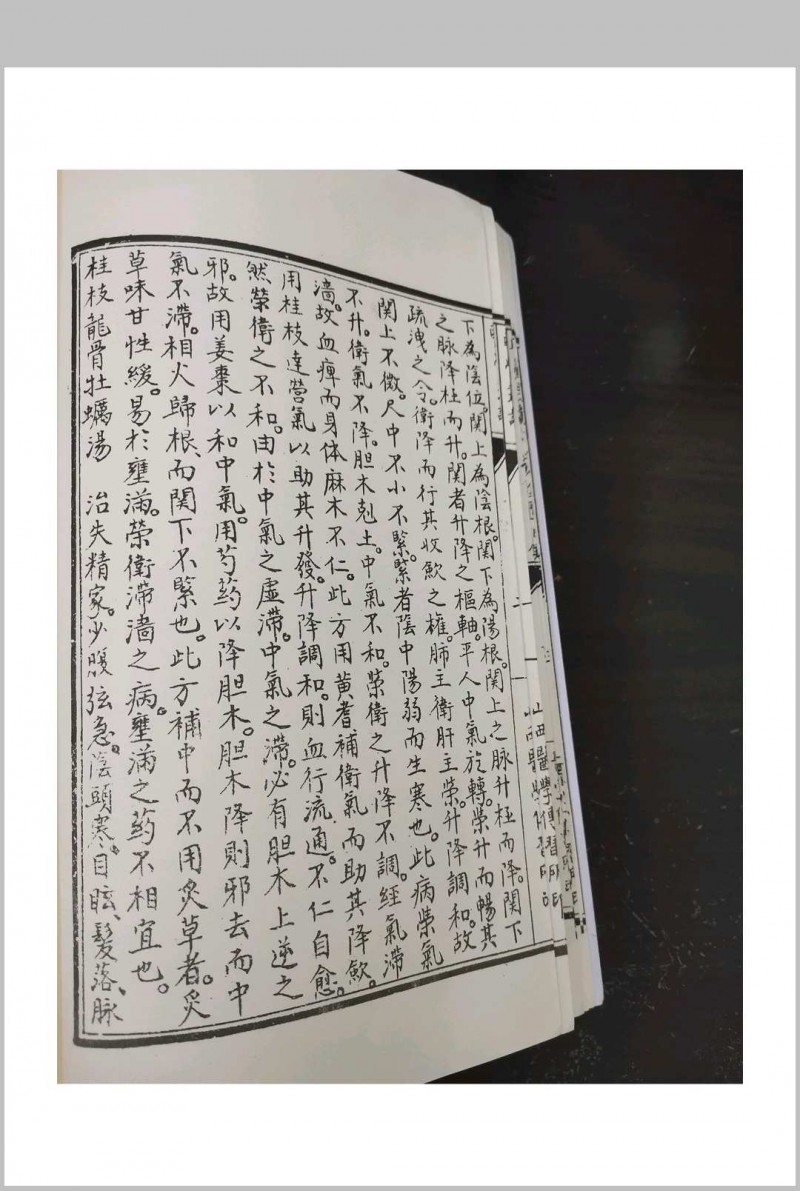 下為陰位。関上為陰根。関下為陽根。関上之脉升枉而降。関下
之脉降枉而升。関者升降之樞軸。平人中氣旋轉。榮升而暢其
疏洩之令。衛降而行其收歛之権。肺主衛肝主榮。升降調和。故
関上不微。尺中不小不緊。緊者陰中陽弱而生寒也。此病榮氣
不升。衛氣不降。胆木剋土。中氣不和。榮衛之升降不調。經氣滞
濇。故血痺而身体麻木不仁。此方用黄耆補衛氣而助其降歛。
用桂枝達營氣以助其升發。升降調和。則血行流通。不仁自愈。
然榮衛之不和。由於中氣之虚滞。中氣之滞。必有胆木上逆之
邪。故用姜棗以和中氣。用芍药以降胆木。胆木降則邪去而中
氣不滞。相火歸根、而関下不緊也。此方補中而不用炙草者。炙
草味甘性緩。易於壅滿。榮衛滞濇之病。壅滿之药不相宜也。
桂枝龍骨牡蠣湯　治失精家。少腹弦急。陰頭寒。目眩、髮落、脉